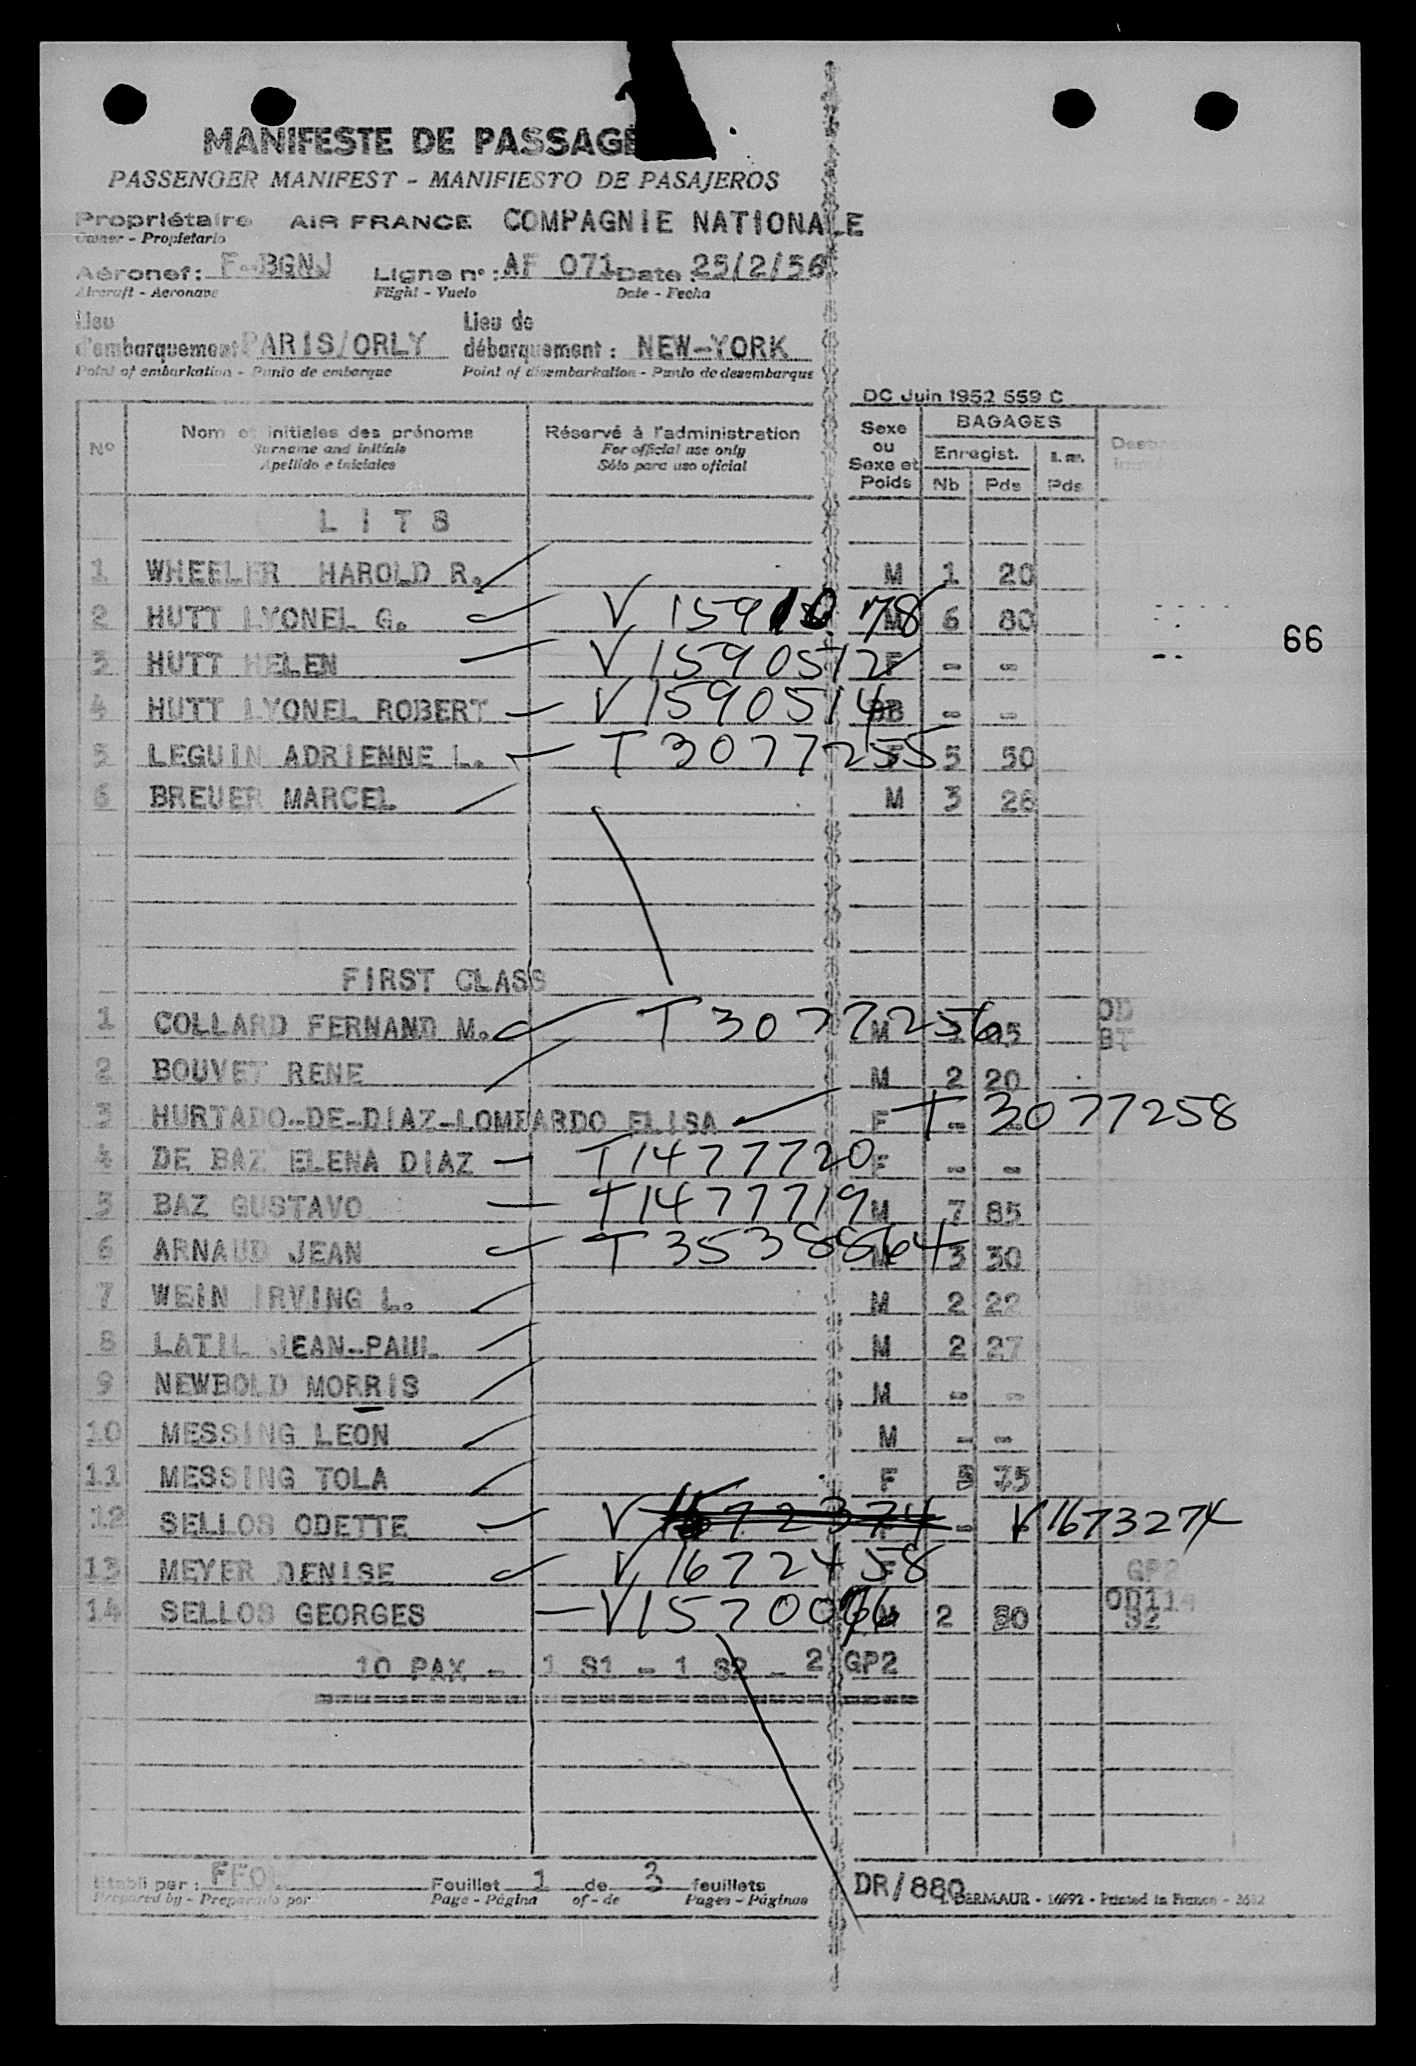 MANIFESTE DE PASSAGE
PASSENGER MANIFEST - MANIFIESTO DE PASAJEROS
Propriétaire AIR FRANCE COMPAGNIE NATIONALE
Owner - Propietario
Aéronef: F-BGNJ Ligne n°: AF 071 Date: 25/2/56
Aircraft - Aeronave Flight - Vuelo Date - Fecha
Lieu d'embarquement PARIS/ORLY Lieu de débarquement: NEW-YORK
Point of embarkation - Punto de embarque Point of disembarkation - Punto de desembarque
DC Juin 1952 559 C
N° Nom et initiales des prénoms Réservé à l'administration Sexe ou Sexe et Poids BAGAGES
Surname and initials For official use only Enregist. Nb Pds Pds
Apellido e iniciales Sólo para uso oficial
LITS
1 WHEELER HAROLD R. M 1 20
2 HUTT LYONEL G. V 1591078 M 6 80
66
3 HUTT HELEN V 1590512 F - -
4 HUTT LYONEL ROBERT V 1590514 BB - -
5 LEGUIN ADRIENNE L. T 3077255 F 5 50
6 BREUER MARCEL M 3 26
FIRST CLASS
1 COLLARD FERNAND M. T 3077256 M OD BT
2 BOUVET RENE M 2 20
3 HURTADO-DE-DIAZ-LOMBARDO ELISA F - T 3077258
4 DE BAZ ELENA DIAZ T 1477720 F - -
5 BAZ GUSTAVO T 1477719 M 7 85
6 ARNAUD JEAN T 3538864 M 3 30
7 WEIN IRVING L. M 2 22
8 LATIL JEAN-PAUL M 2 27
9 NEWBOLD MORRIS M - -
10 MESSING LEON M - -
11 MESSING TOLA F 5 75
12 SELLOS ODETTE V 1672374 - V 1673274
13 MEYER DENISE V 1672458 F GP2
14 SELLOS GEORGES V 1570066 M 2 50 OD114 S2
10 PAX - 1 S1 - 1 S2 - 2 GP2
Etabli par: Feuillet 1 de 3 feuillets DR/880
Prepared by - Preparado por Page - Página of - de Pages - Páginas DERMAUR - 16992 - Printed in France